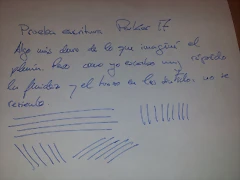 Prueba escritura Pelikan
Algo más claro de lo que imaginé el
plumín fino como yo escribo muy rápido
la fluidez y el trazo en los detalles no se